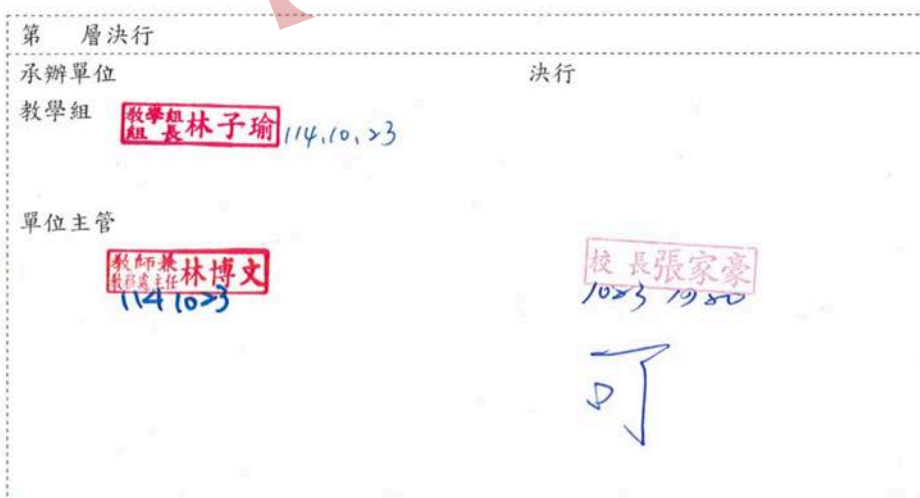 第 層決行
承辦單位 決行
教學組
教學組組長 林子瑜 114.10.23
單位主管
教師兼教務處主任 林博文
114 1023
校長張家豪
1023 1920
可